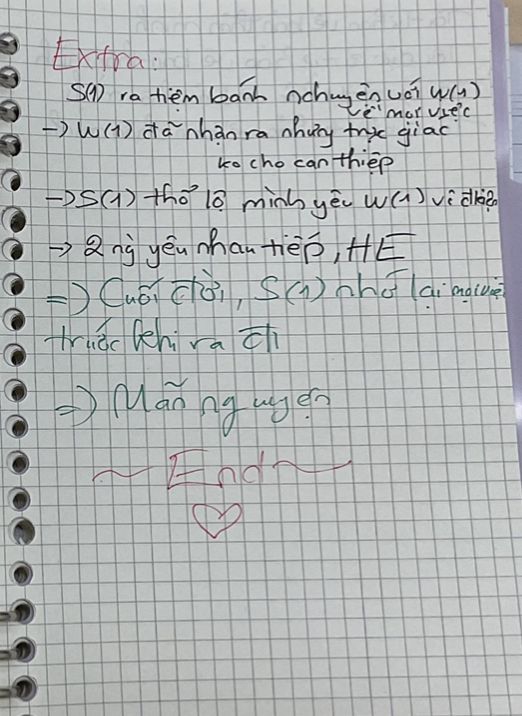 Extra:
S(1) ra tiệm bánh nchuyện với W(1)
về mọi việc
-> W(1) đã nhận ra nhưng trực giác
ko cho can thiệp
-> S(1) thổ lộ mình yêu W(1) vì
-> 2 ng yêu nhau tiếp, HE
=> Cuối đời, S(1) nhớ lại mọi việc
trước khi ra đi
=> Mãn nguyện
~ End ~